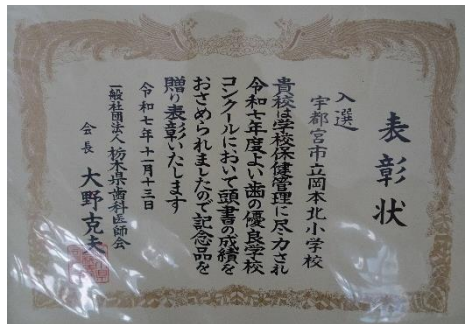 表彰状
入選
宇都宮市立岡本北小学校
貴校は学校保健管理に尽力され
令和七年度よい歯の優良学校
コンクールにおいて頭書の成績を
おさめられましたので記念品を
贈り表彰いたします
令和七年十一月十三日
一般社団法人 栃木県歯科医師会
会長 大野克夫